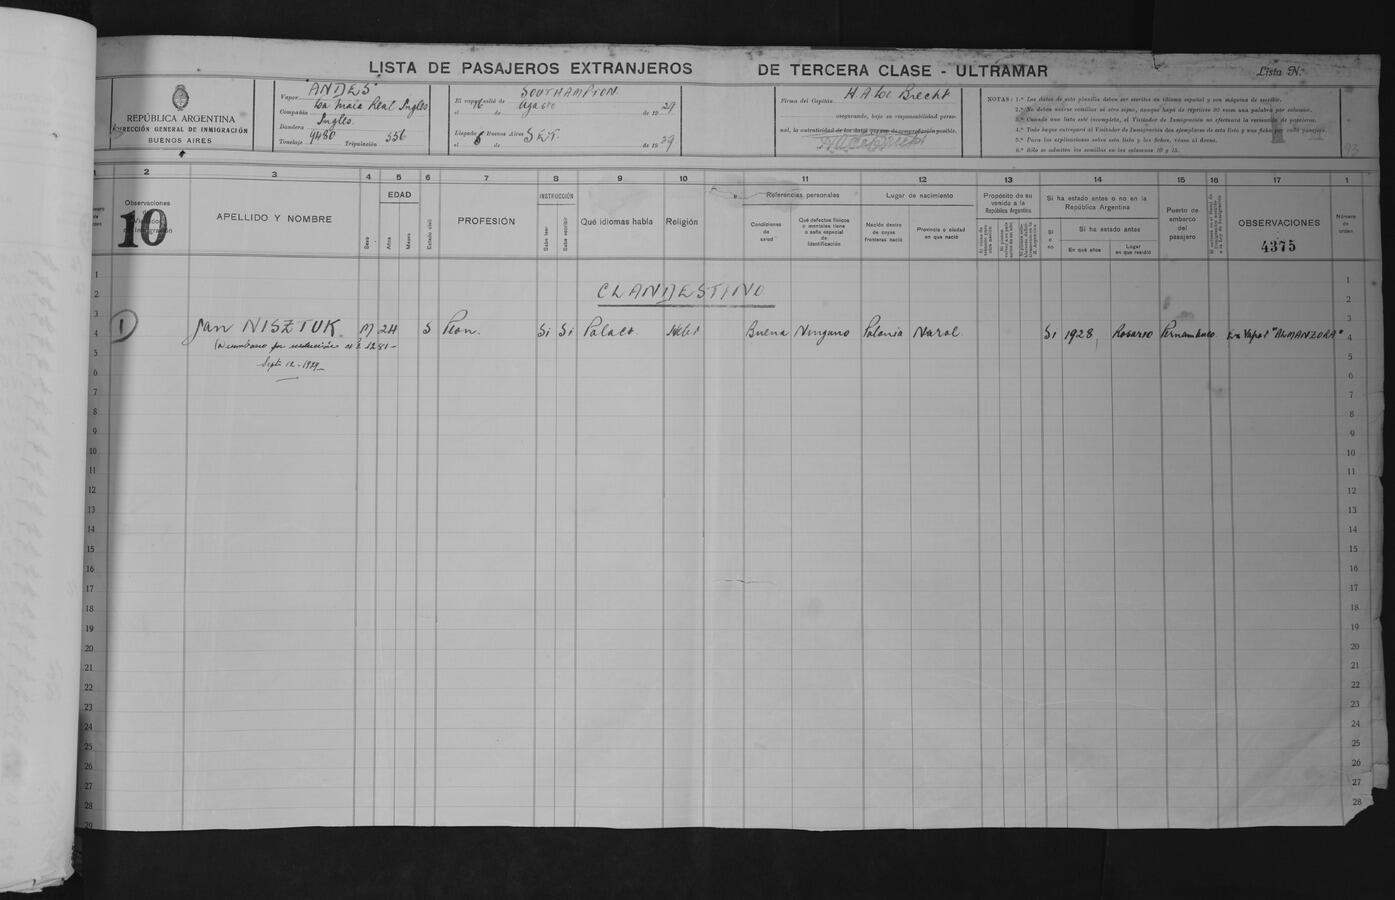 LISTA DE PASAJEROS EXTRANJEROS DE TERCERA CLASE - ULTRAMAR
Lista N.
REPÚBLICA ARGENTINA
DIRECCIÓN GENERAL DE INMIGRACIÓN
BUENOS AIRES
Vapor "ANDES"
Compañía La Mala Real Inglesa
Bandera Inglesa
Tonelaje 9480 Tripulación 336
El vapor salió de SOUTHAMPTON
el 16 de Agosto de 1929
Llegado a Buenos Aires
el 6 de SET. de 1929
Firma del Capitán
asegurando, bajo su responsabilidad perso-
nal, la autenticidad de los datos que son de comprobación posible.
NOTAS: 1.ª Los datos de esta planilla deben ser escritos en idioma español y con máquina de escribir.
2.ª No deben usarse comillas ni otro signo, aunque haya de repetirse 30 veces una palabra por columna.
3.ª Cuando una lista esté incompleta, el Visitador de Inmigración no efectuará la recepción de pasajeros.
4.ª Todo buque entregará al Visitador de Inmigración dos ejemplares de esta lista y una ficha por cada pasajero.
5.ª Para las explicaciones sobre esta lista y las fichas, véase al dorso.
6.ª Sólo se admiten las comillas en las columnas 10 y 15.
93
1 2 3 4 5 6 7 8 9 10 11 12 13 14 15 16 17 1
Número de orden
Observaciones
Visitador de Inmigración
10
APELLIDO Y NOMBRE
Sexo
EDAD
Años
Meses
Estado civil
PROFESIÓN
INSTRUCCIÓN
Sabe leer
Sabe escribir
Qué idiomas habla
Religión
Referencias personales
Condiciones de salud
Qué defectos físicos o mentales tiene o seña especial de identificación
Lugar de nacimiento
Nación dentro de cuyas fronteras nació
Provincia o ciudad en que nació
Propósito de su venida a la República Argentina
Si ha estado antes o no en la República Argentina
Si o no
Si ha estado antes
En qué años
Lugar en que residió
Puerto de embarco del pasajero
OBSERVACIONES
4375
Número de orden
CLANDESTINO
1 Jan NISZTUK M 24 S Peon. Si Si Polaco Buena Ninguno Polonia Narol Si 1928, Rosario Pernambuco. Ex Vapor "ALMANZORA"
Septi 12-1929
1
2
3
4
5
6
7
8
9
10
11
12
13
14
15
16
17
18
19
20
21
22
23
24
25
26
27
28
29